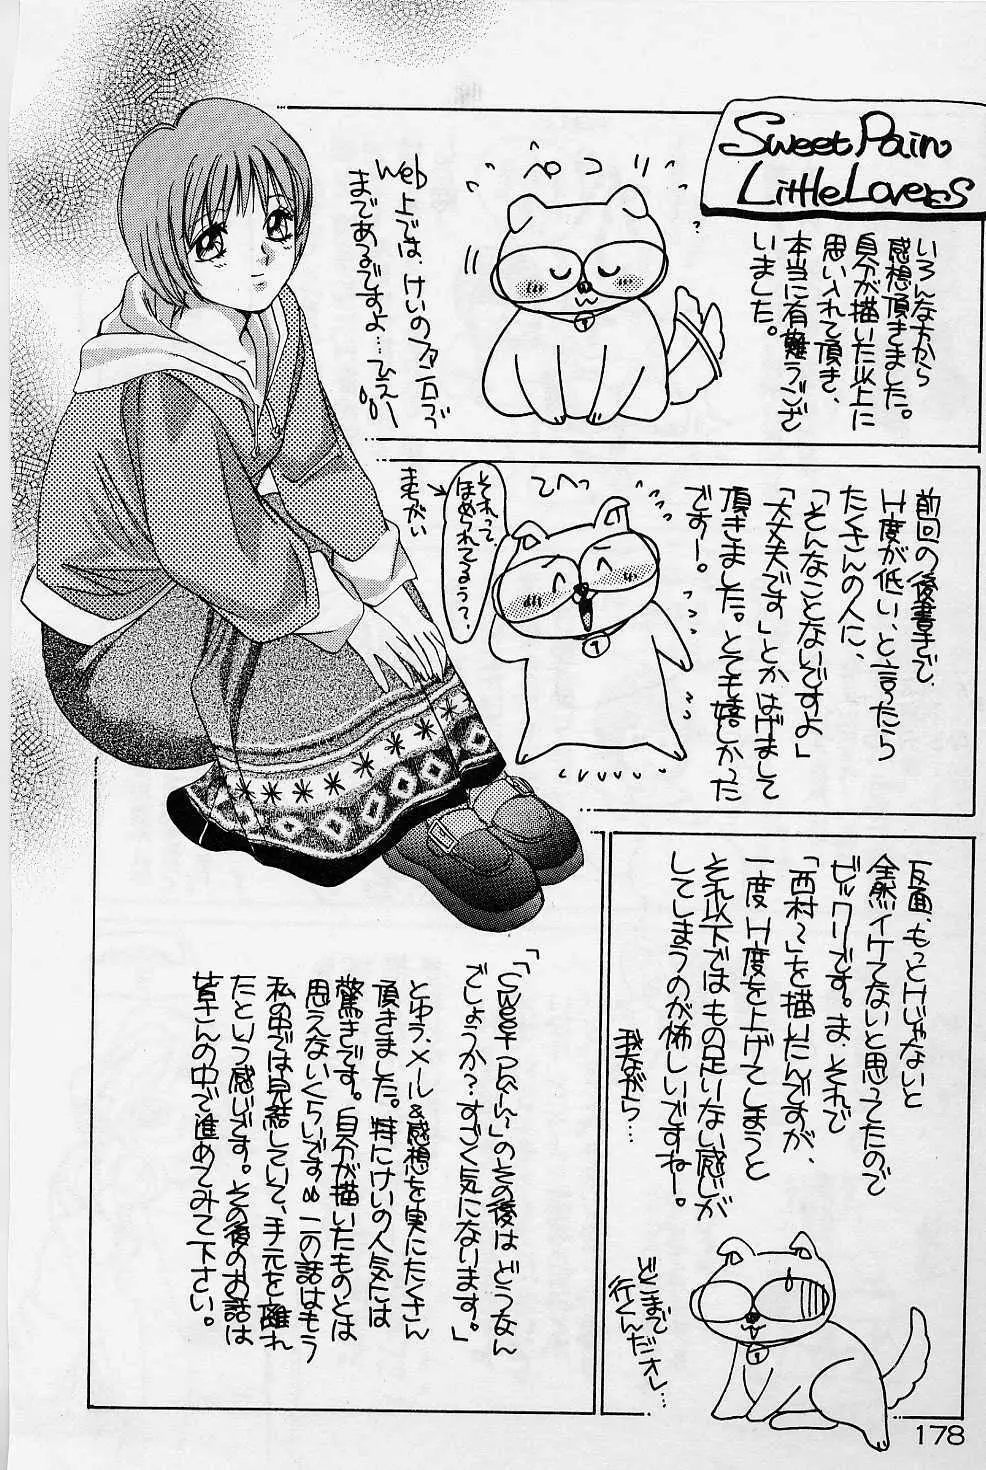 Sweet Pain
Little Lovers
いろんな方から
感想頂きました。
自分が描いた以上に
思い入れて頂き、
本当に有難うござ
いました。
ペコリ
Web上では、けいのファン石づ
まであるですよ…ひえー
前回の後書きで、
H度が低い、と言ったら
たくさんの人に、
「そんなことないですよ」
「大丈夫です」とかはげまして
頂きました。とても嬉しかった
です！。
てへっ
それって
ほめられてるぅ？
まちがい
反面、もっとHじゃないと
全然イケてないと思ってたので
ビックリです。ま、それで
「西村〜」を描いたんですが、
一度H度を上げてしまうと
それ以下ではもの足りない感じが
してしまうのが怖しいですねー。
我ながら…
どこまで
行くんだオレ…
「「Sweet Pain〜」のその後はどうなん
でしょうか？すごく気になります。」
とゆう、メール&感想を実にたくさん
頂きました。特にけいの人気には
驚きです。自分が描いたものとは
思えないくらいです。この話はもう
私の中では完結していて、手元を離れ
たという感じです。その後のお話は
皆さんの中で進めてみて下さい。
178